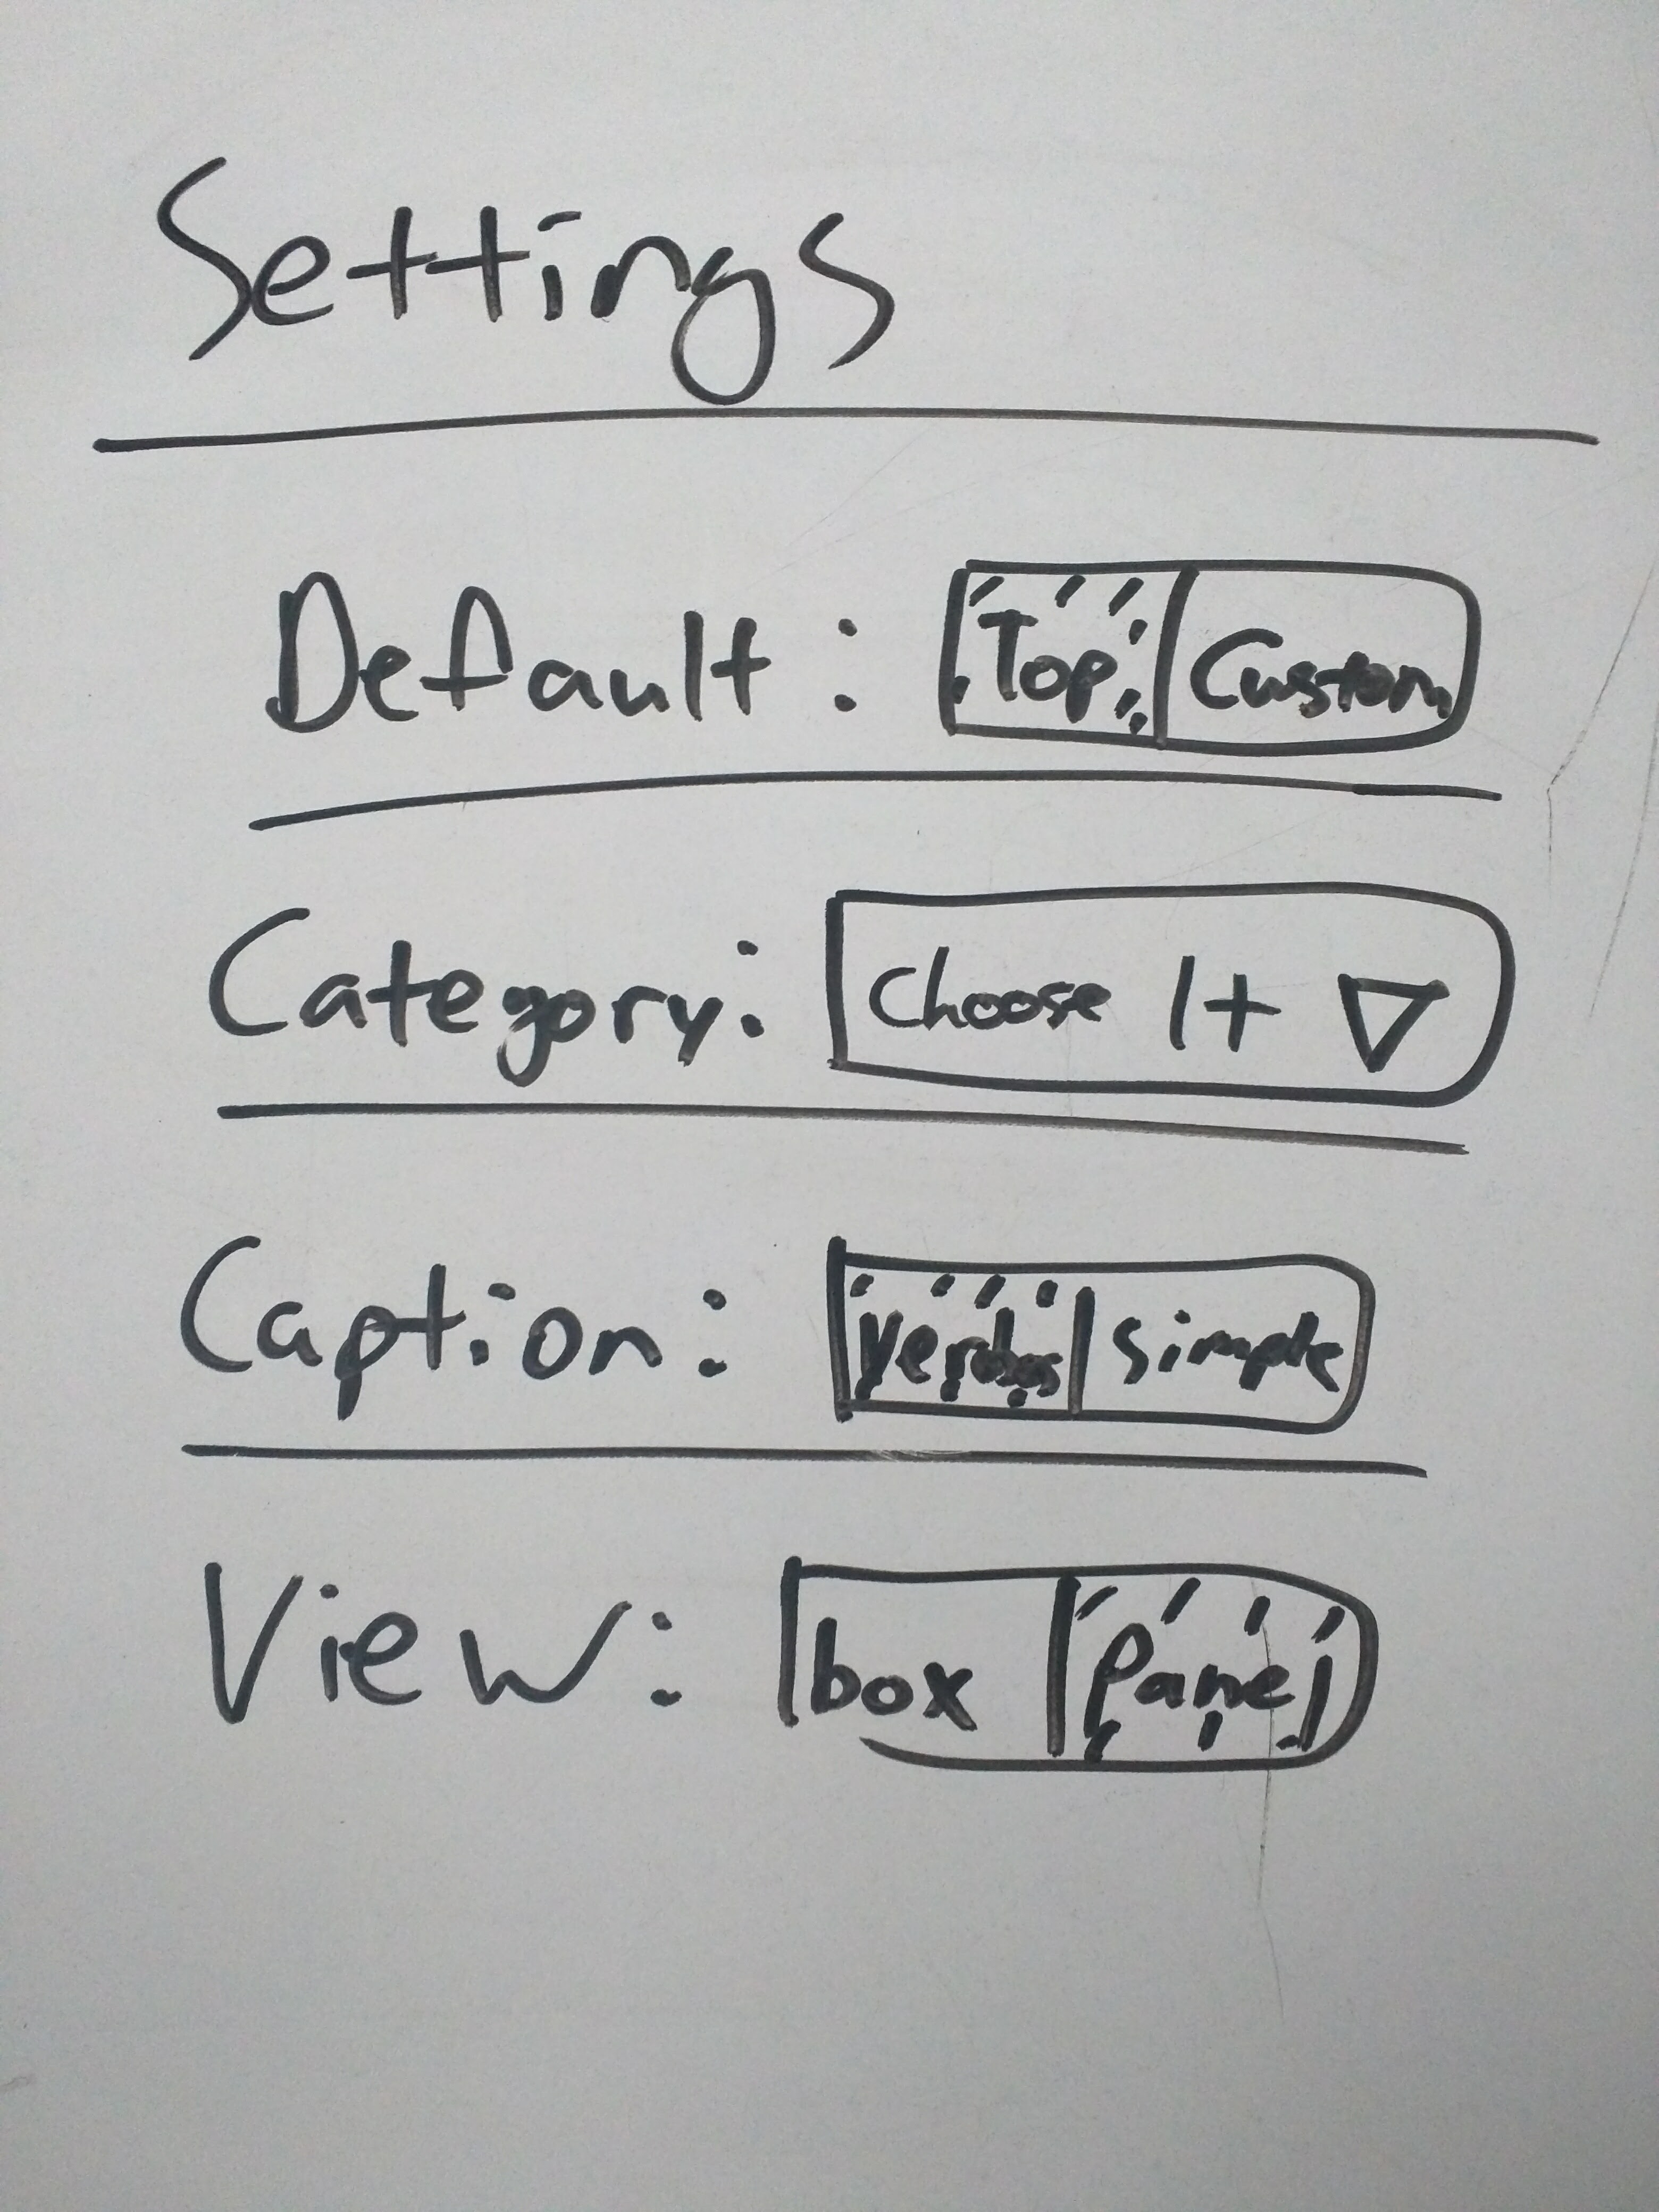 Settings
Default: Top Custom
Category: Choose 1+
Caption: Verbos simple
View: box Panel